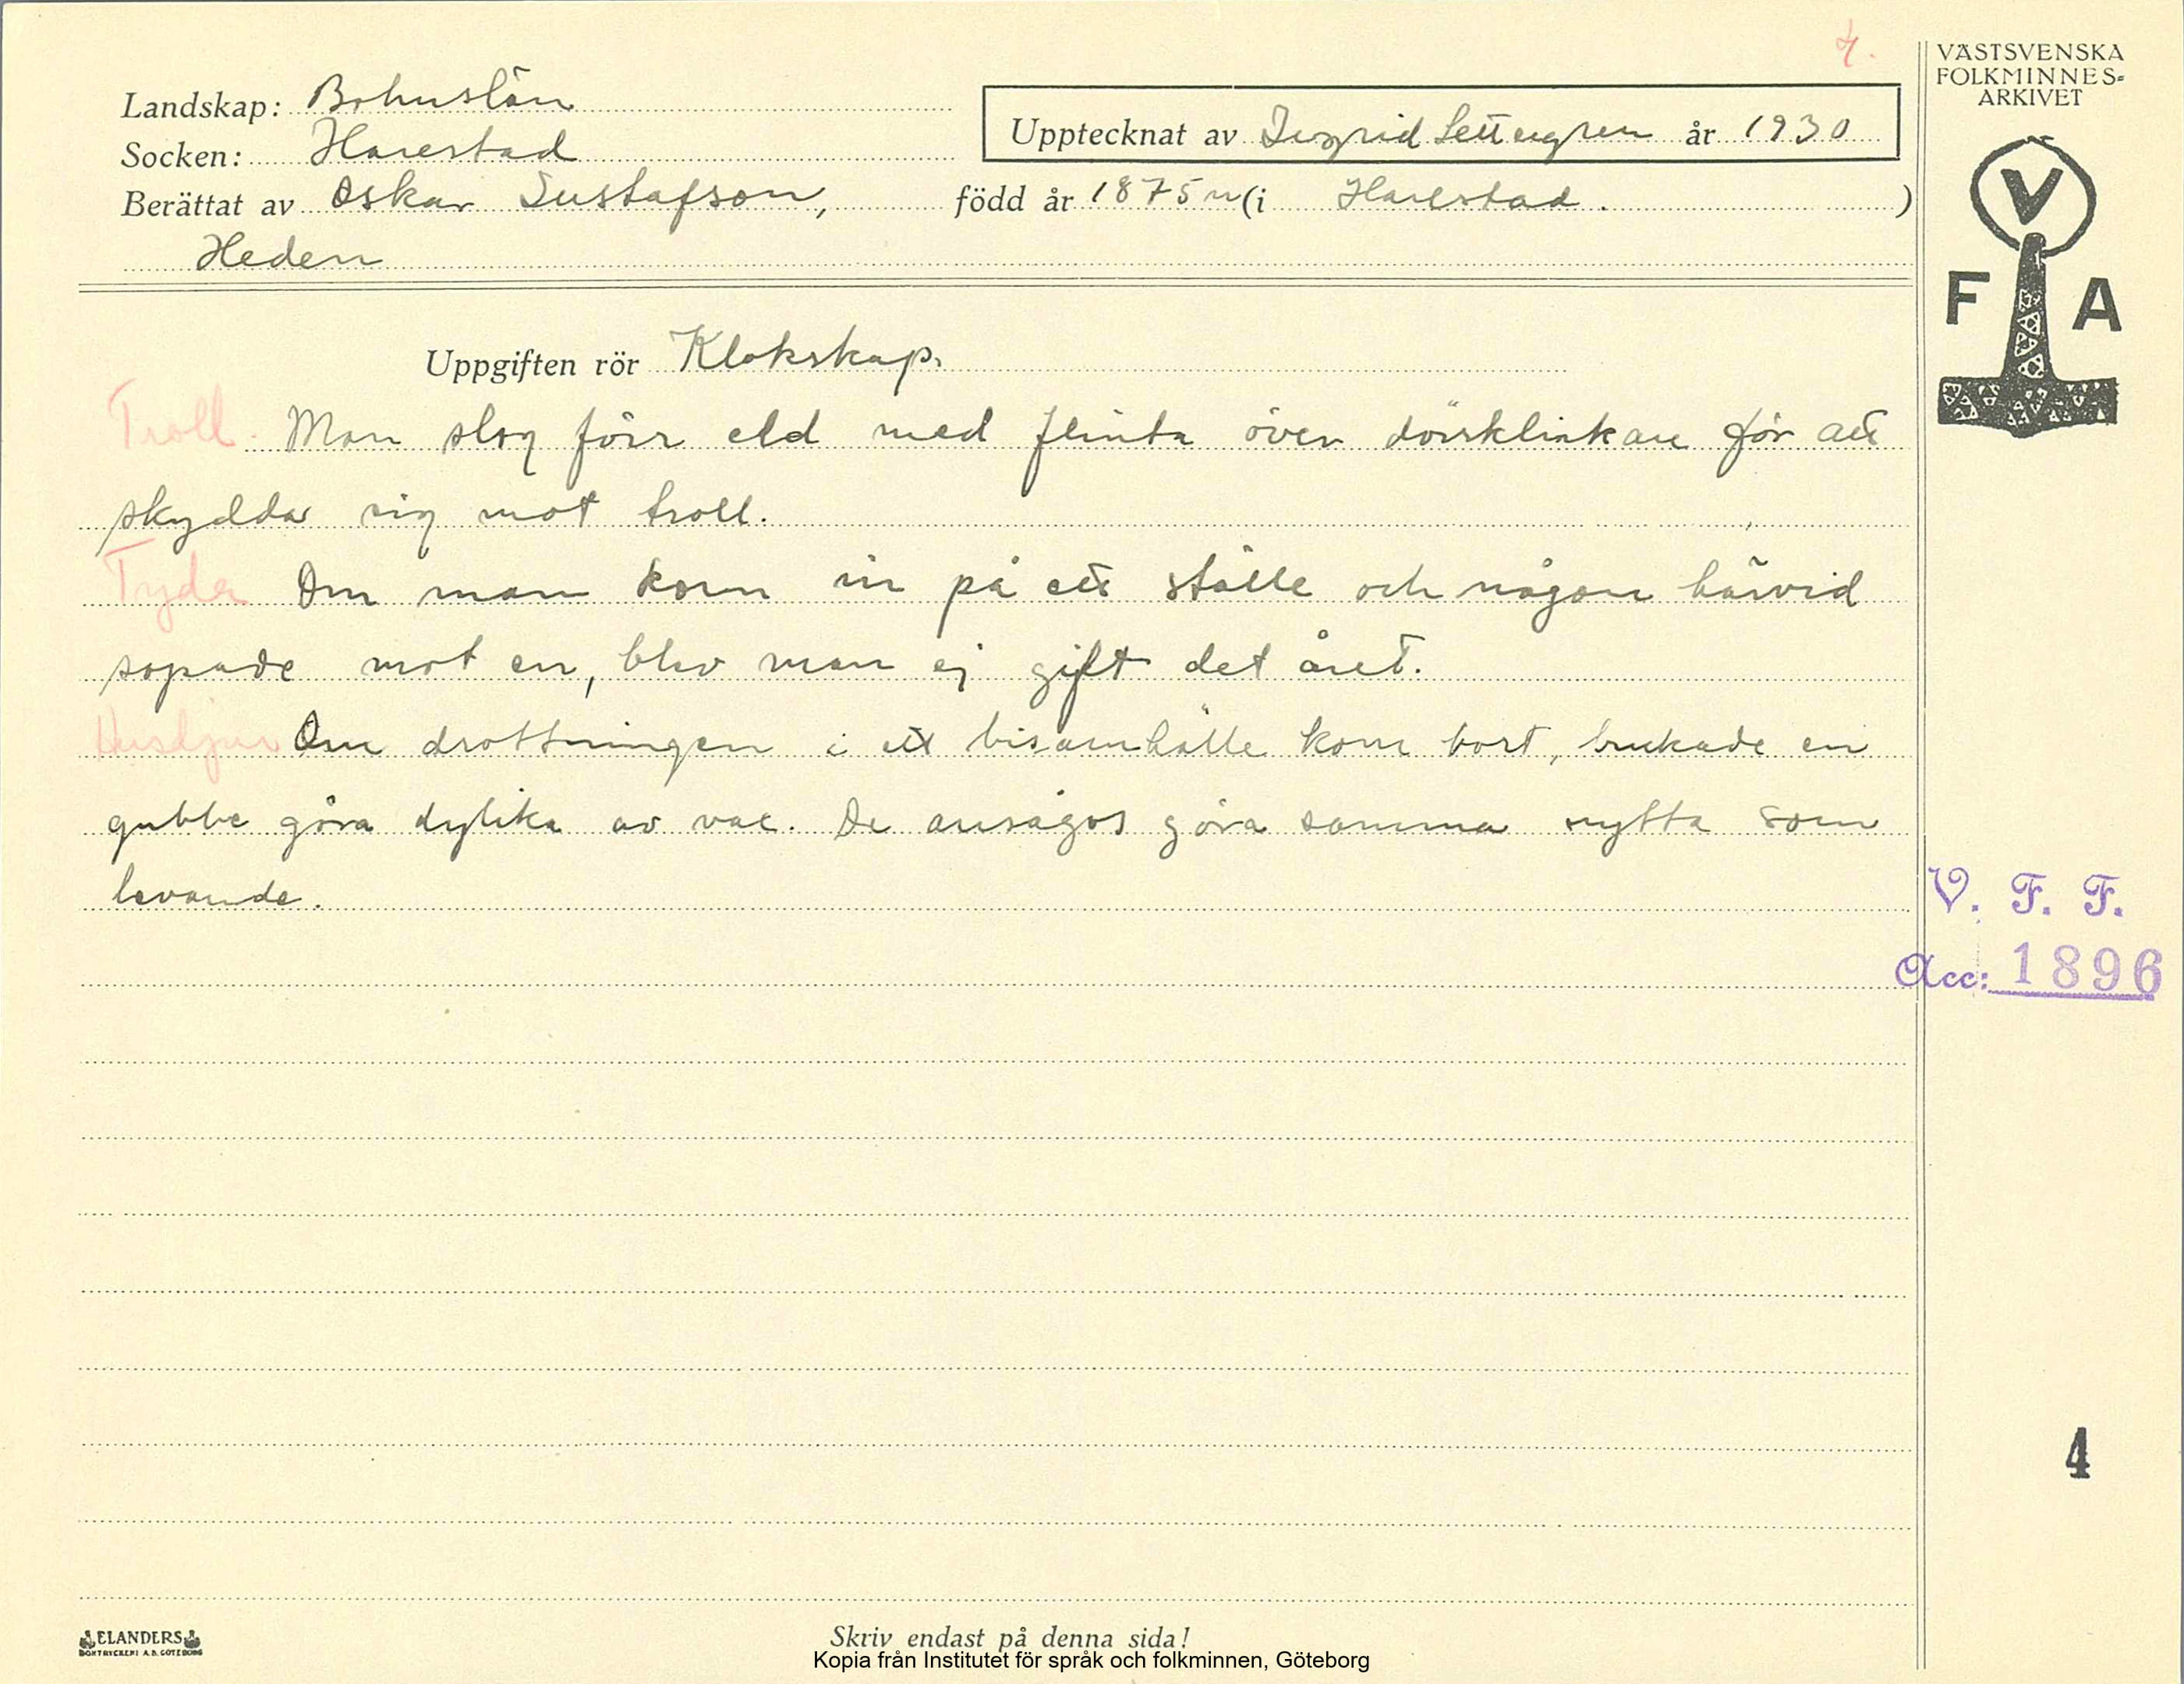 4.
VÄSTSVENSKA
FOLKMINNES-
ARKIVET
Landskap: Bohuslän
Upptecknat av Ingrid Settergren år 1930
Socken: Harestad
Berättat av Oskar Gustafson, född år 1875 (i Harestad.)
Heden
V
F A
Uppgiften rör Klokskap.
Troll. Man slog förr eld med flinta över dörrklinkan för att
skydda sig mot troll.
Tyder Om man kom in på ett ställe och någon härvid
sopade mot en, blev man ej gift det året.
Husdjur Om drottningen i ett bisamhälle kom bort, brukade en
gubbe göra dylika av vax. De ansågos göra samma nytta som
levande.
V. F. F.
Acc: 1896
4
ELANDERS
BOKTRYCKERI A.B. GÖTEBORG
Skriv endast på denna sida!
Kopia från Institutet för språk och folkminnen, Göteborg